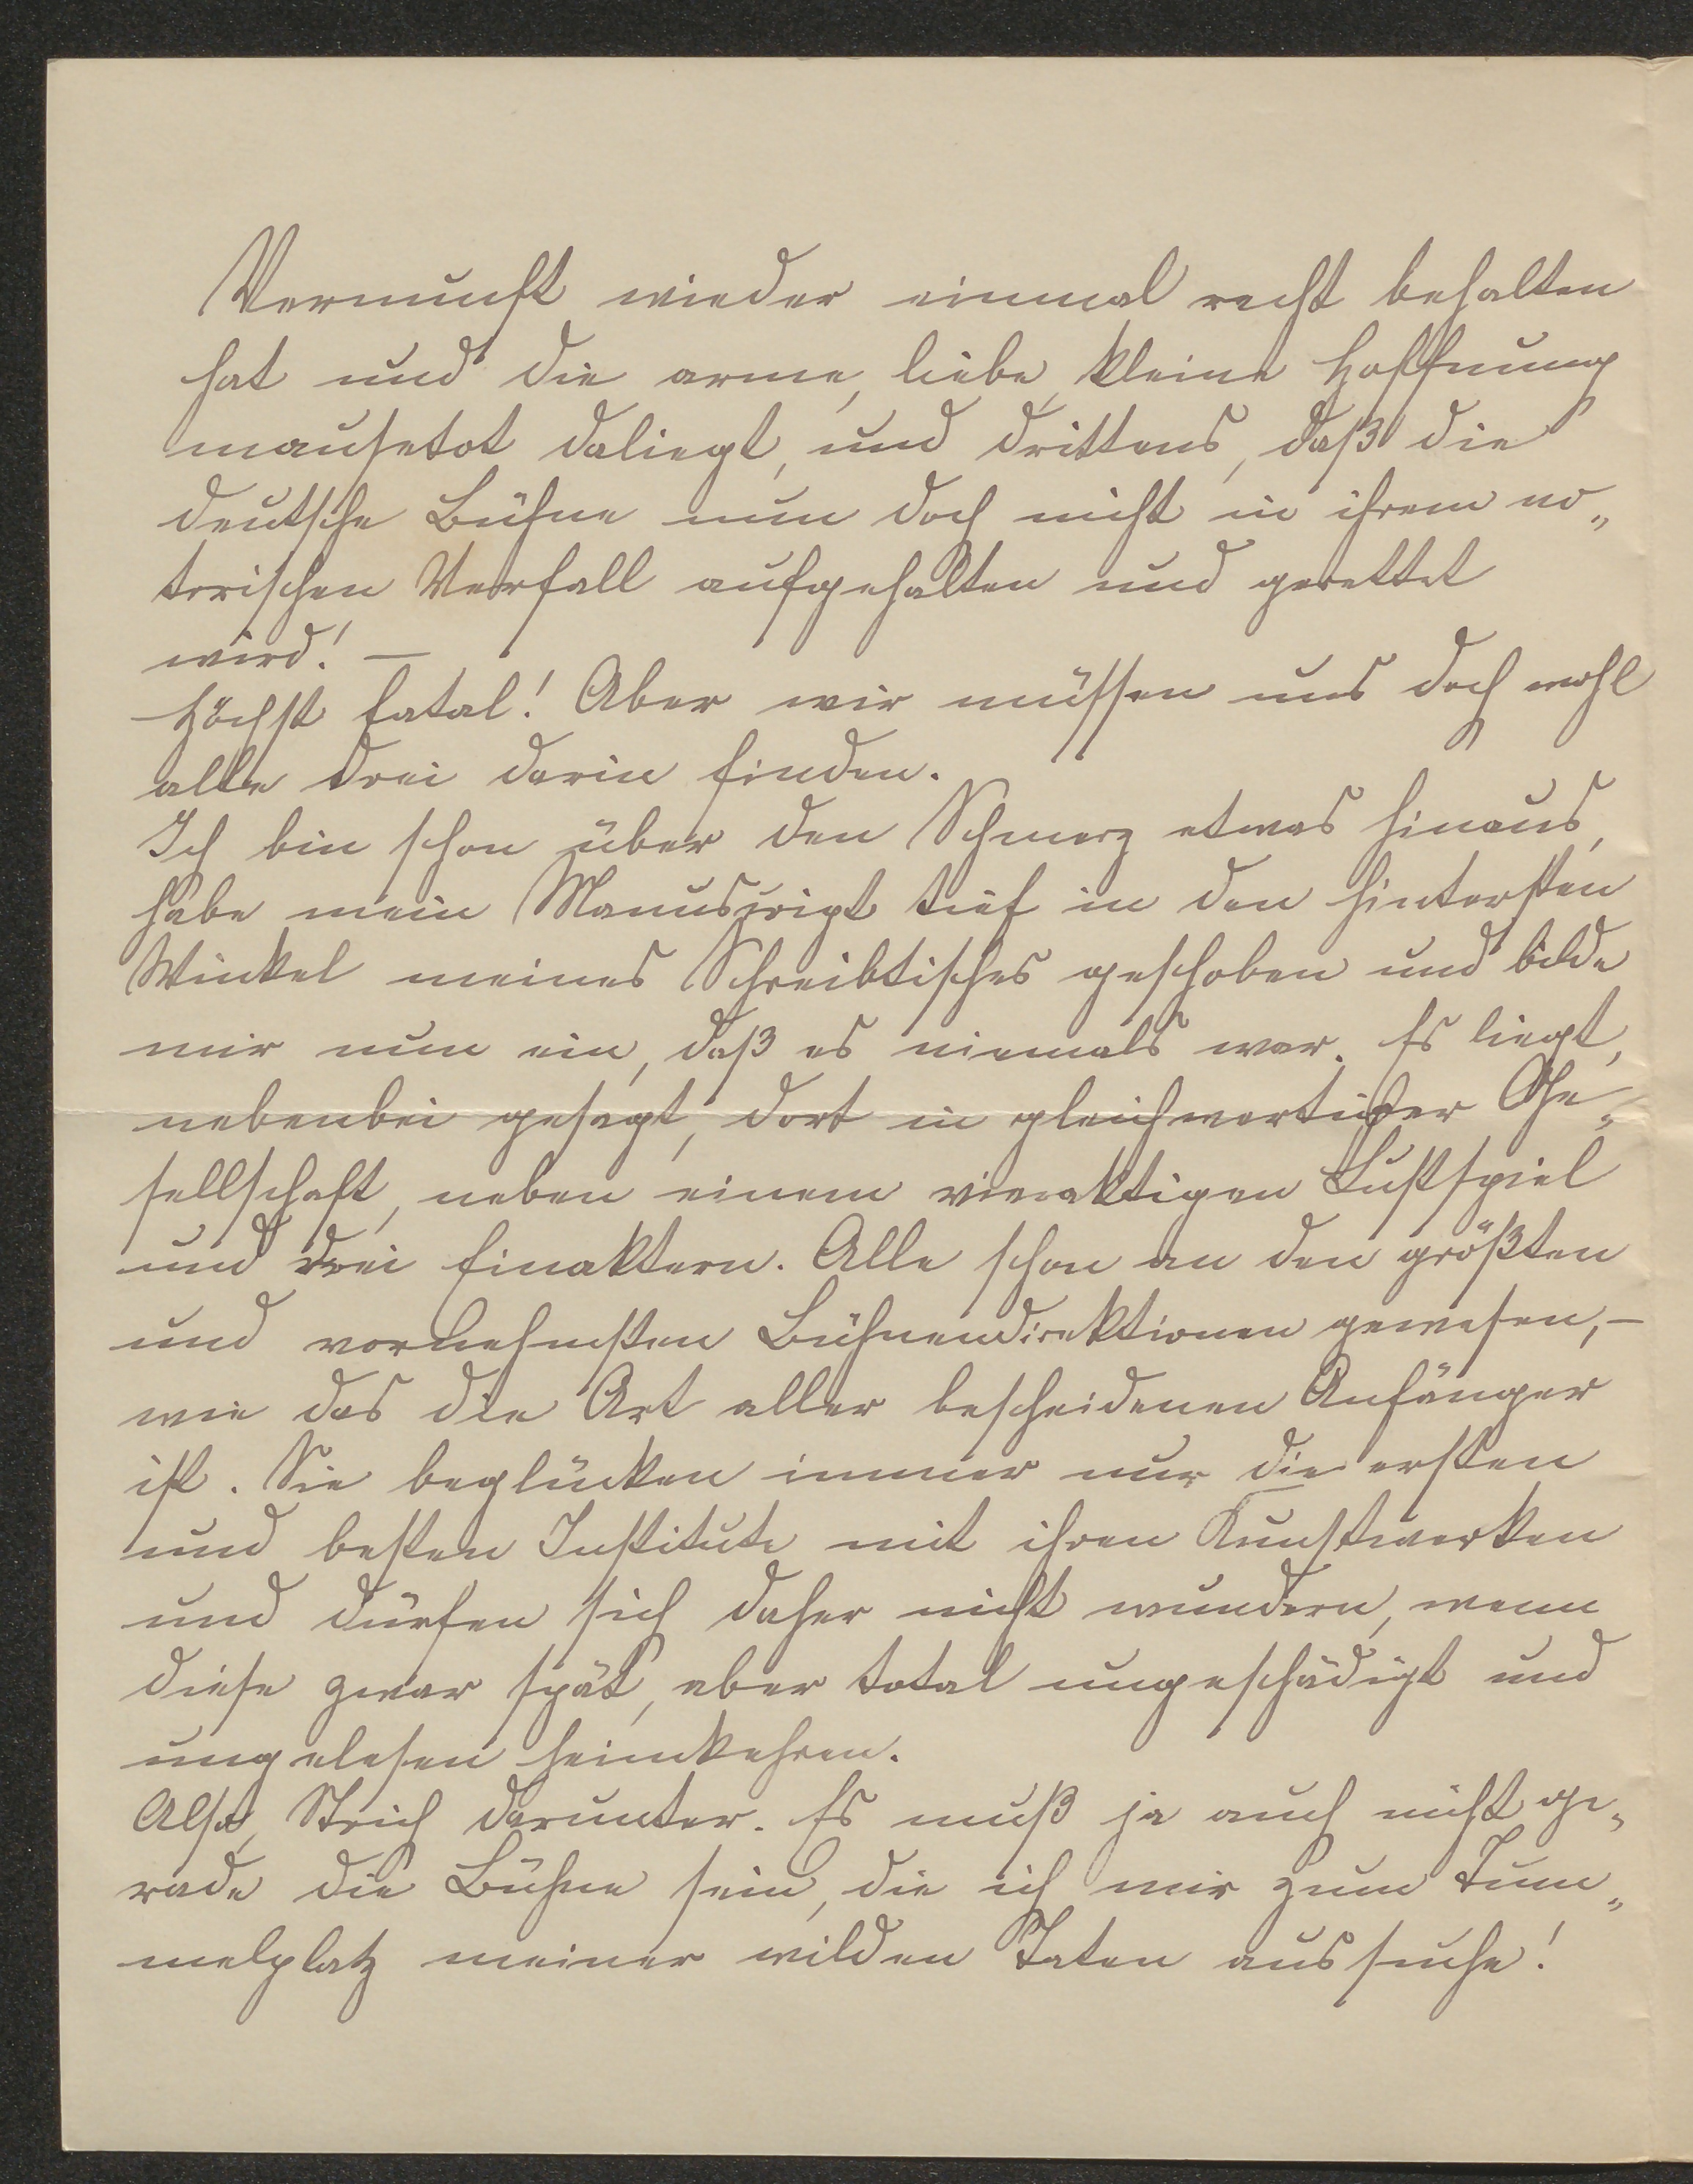 Vernunft wieder einmal recht behalten
hat und die arme, liebe, kleine Hoffnung
mausetot daliegt, und drittens, daß die
deutsche Bühne nun doch nicht in ihrem no„
torischen Verfall aufgehalten und gerettet
wird! —
Höchst fatal! Aber wir müssen uns doch wohl
alle drei darin finden.
Ich bin schon über den Schmerz etwas hinaus,
habe mein Manuscript tief in den hintersten
Winkel meines Schreibtisches geschoben und bilde
mir nun ein, daß es niemals war. Es liegt,
nebenbei gesagt, dort in gleichwertiger Ge„
sellschaft, neben einem vieraktigen Lustspiel
und drei Einaktern. Alle schon an den größten
und vornehmsten Bühnendirektionen gewesen, —
wie das die Art aller bescheidenen Anfänger
ist. Sie beglücken immer nur die ersten
und besten Institute mit ihren Kunstwerken
und dürfen sich daher nicht wundern, wenn
diese zwar spät, aber total ungeschädigt und
ungelesen heimkehren.
Also, Strich darunter. Es muß ja auch nicht ge„
rade die Bühne sein, die ich mir zum Tum„
melplatz meiner wilden Taten aussuche!